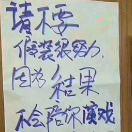 请不要
假装很努力,
因为 结果
不会陪你演戏